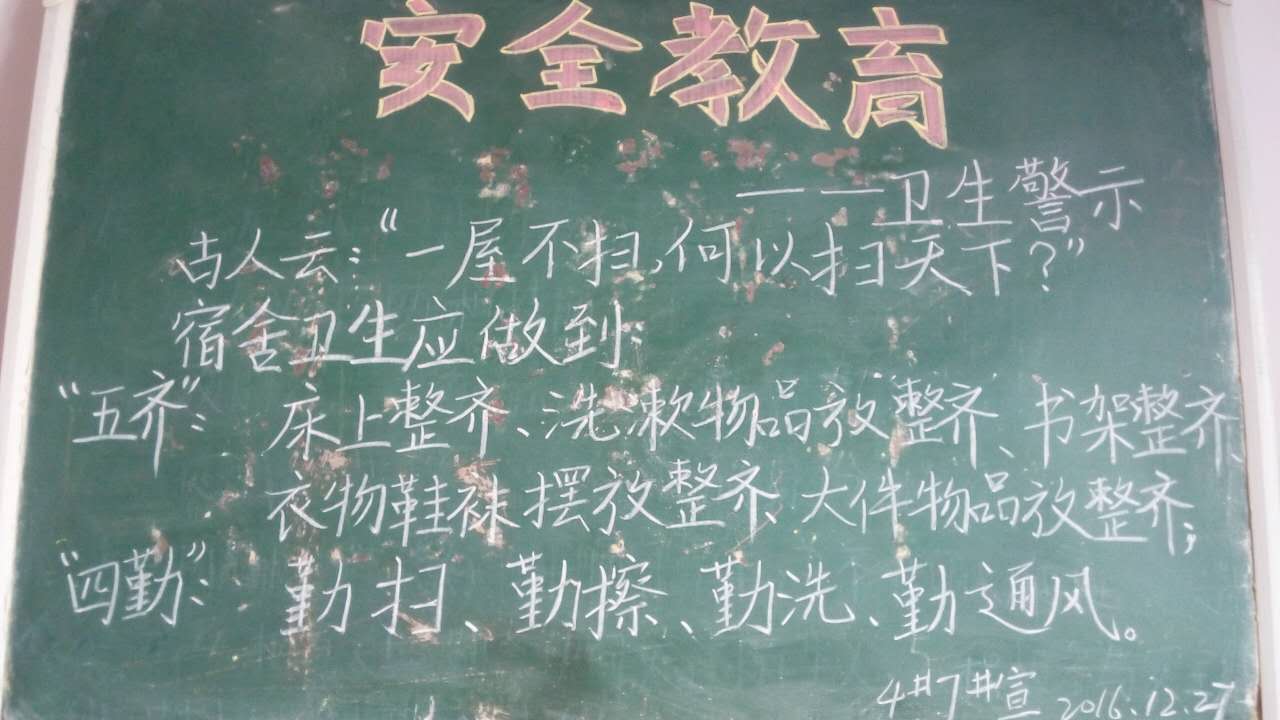 安全教育
——卫生警示
古人云:“一屋不扫,何以扫天下?”
宿舍卫生应做到:
“五齐”: 床上整齐、洗漱物品放整齐、书架整齐、
衣物鞋袜摆放整齐、大件物品放整齐;
“四勤”: 勤扫、勤擦、勤洗、勤通风。
4#7#宣 2016.12.27